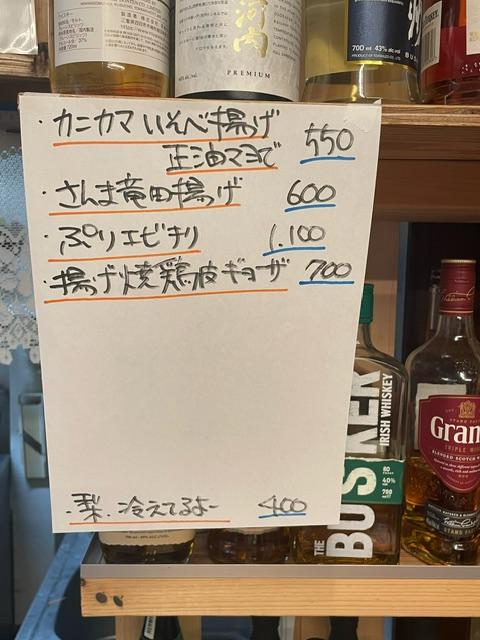 河内
PREMIUM
700 ml 43% alc/vol
・カニカマいそべ揚げ 550
正油マヨで
・さんま竜田揚げ 600
・ぷりエビチリ 1,100
・揚げ焼鶏皮ギョーザ 700
・梨、冷えてるよー 400
THE BUSKER
IRISH WHISKEY
40%
Gran
TRIPLE WOOD
BLENDED SCOTCH